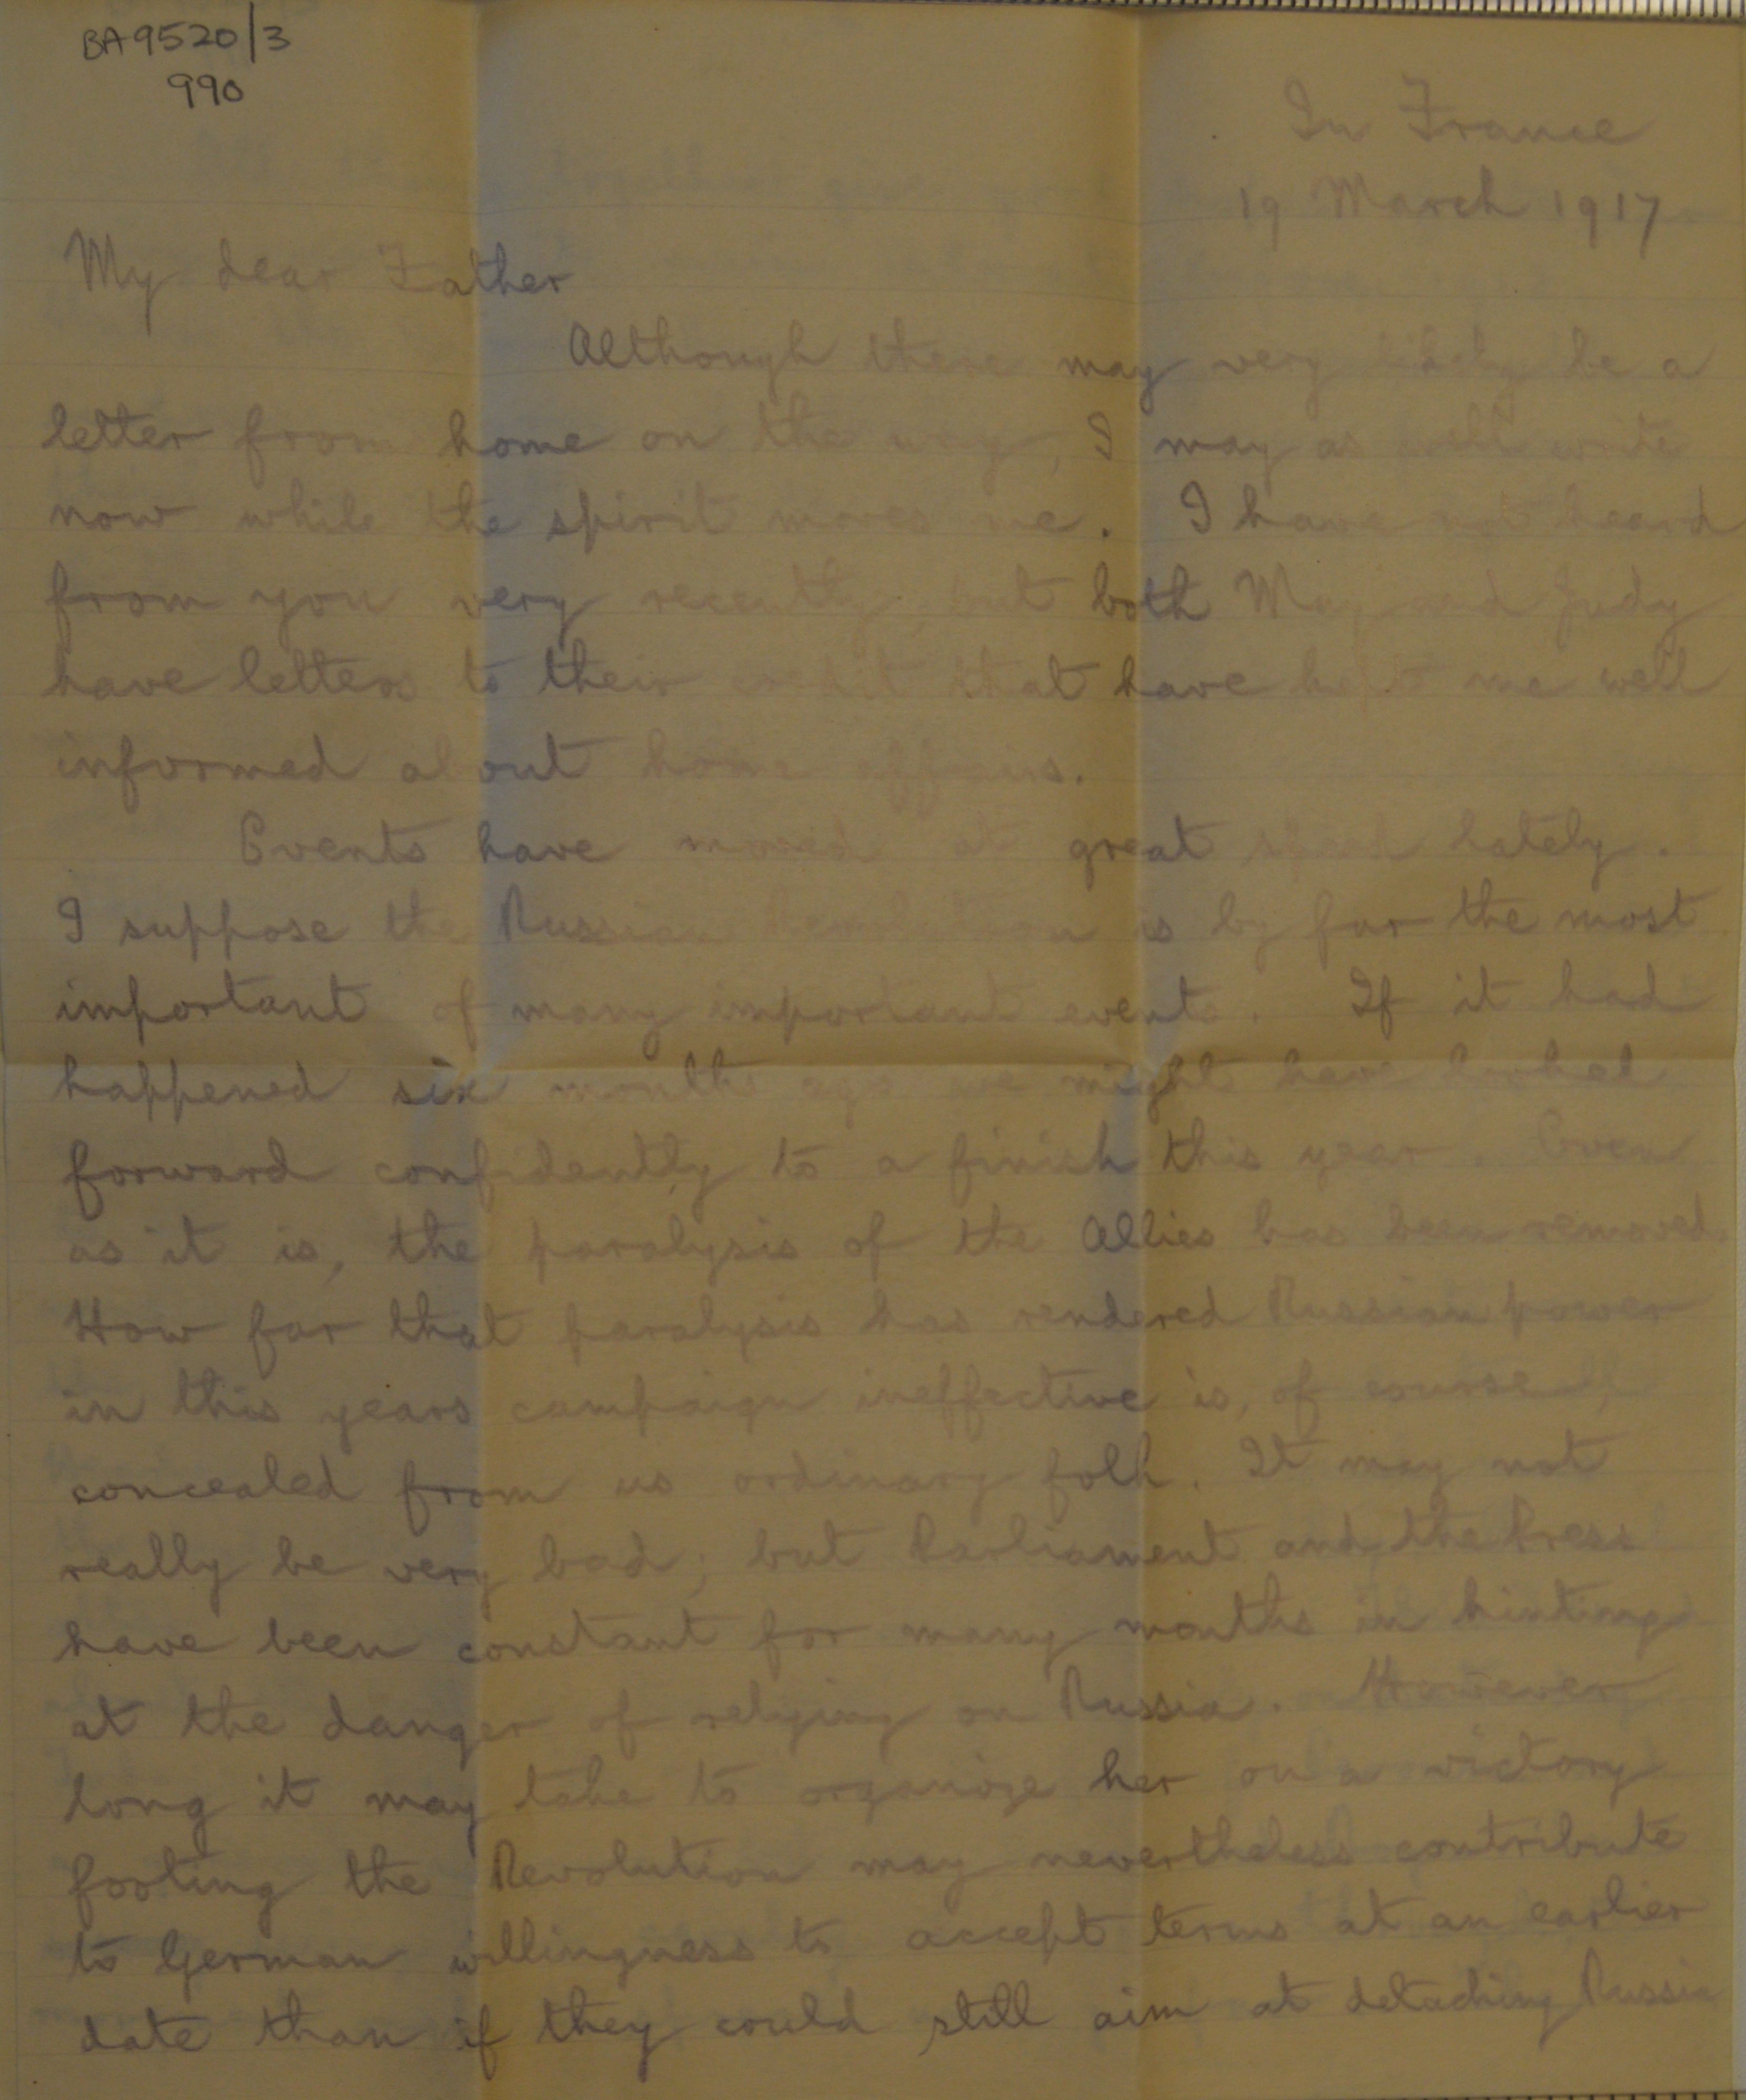 BA9520/3
990
In France
19 March 1917
My dear Father
Although there may very likely be a
letter from home on the way, I may as well write
now while the spirit moves me. I have not heard
from you very recently, but both May and Judy
have letters to their credit that have kept me well
informed about home affairs.
Events have moved at great speed lately.
I suppose the Russian Revolution is by far the most
important of many important events. If it had
happened six months ago we might have looked
forward confidently to a finish this year. Even
as it is, the paralysis of the Allies has been removed.
How far that paralysis has rendered Russian power
in this years campaign ineffective is, of course,
concealed from us ordinary folk. It may not
really be very bad; but Parliament and the Press
have been constant for many months in hinting
at the danger of relying on Russia. However
long it may take to organize her on a victory
footing the Revolution may nevertheless contribute
to German willingness to accept terms at an earlier
date than if they could still aim at detaching Russia